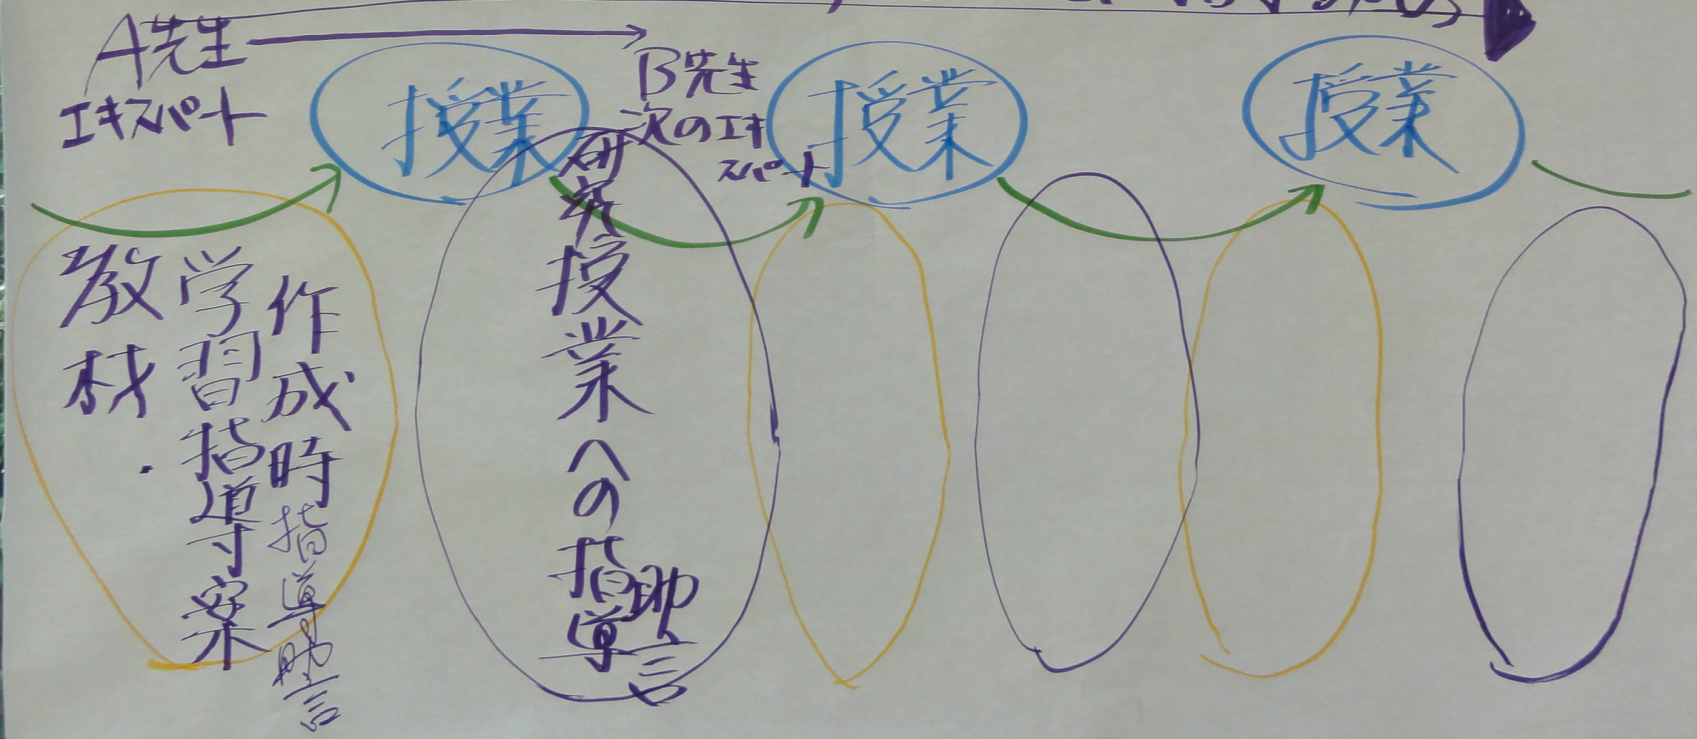 A先生
エキスパート
授業
B先生
次のエキ
スパート
授業
授業
教材・
学習指導案
作成時指導助言
研究授業への指導
助言